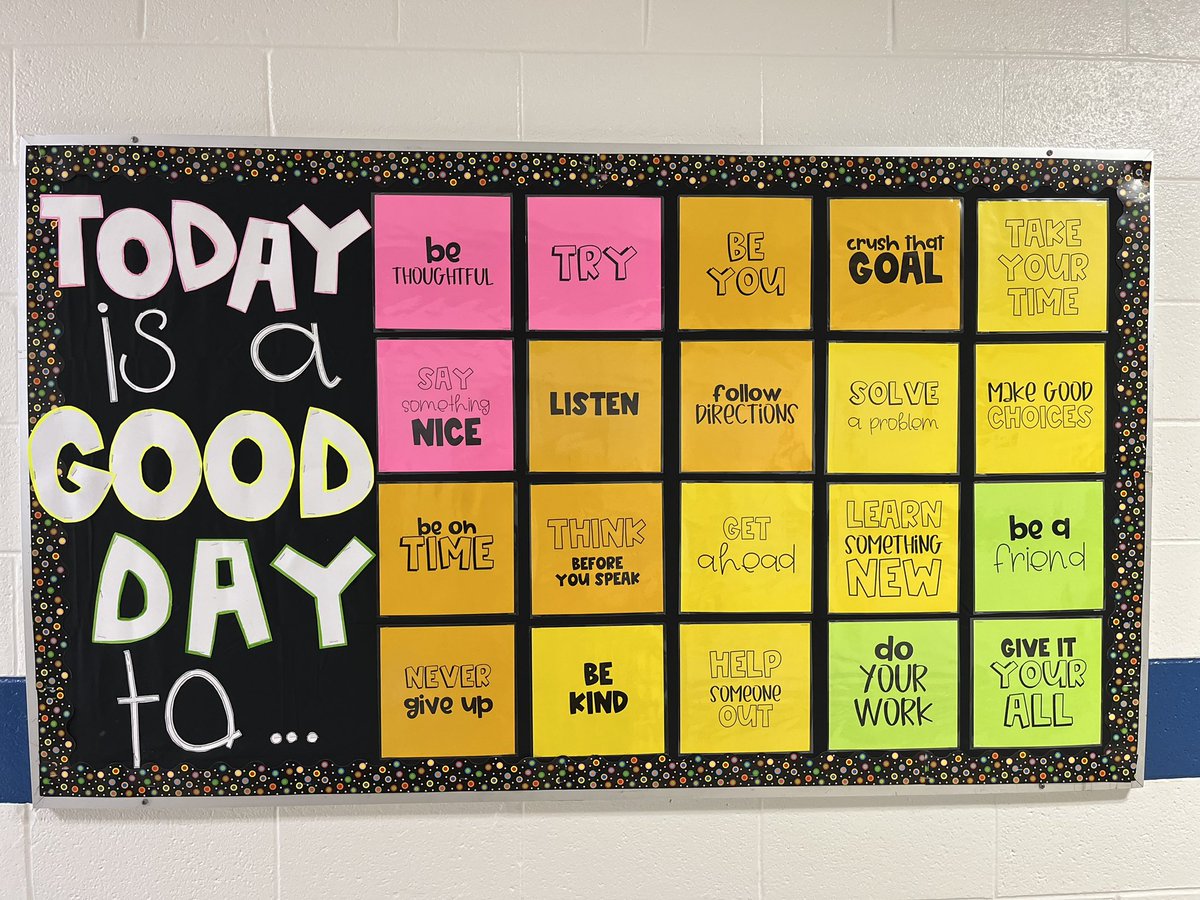 TODAY
is a
GOOD
DAY
to...
be
THOUGHTFUL
TRY
BE
YOU
crush that
GOAL
TAKE
YOUR
TIME
SAY
something
NICE
LISTEN
follow
DIRECTIONS
SOLVE
a problem
MAKE GOOD
CHOICES
be on
TIME
THINK
BEFORE
YOU SPEAK
GET
ahead
LEARN
SOMETHING
NEW
be a
friend
NEVER
give up
BE
KIND
HELP
SOMEONE
OUT
do
YOUR
WORK
GIVE IT
YOUR
ALL